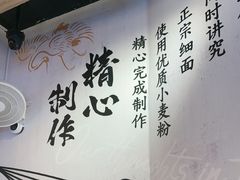 时讲究
正宗细面
使用优质小麦粉
精心完成制作
精心
制作